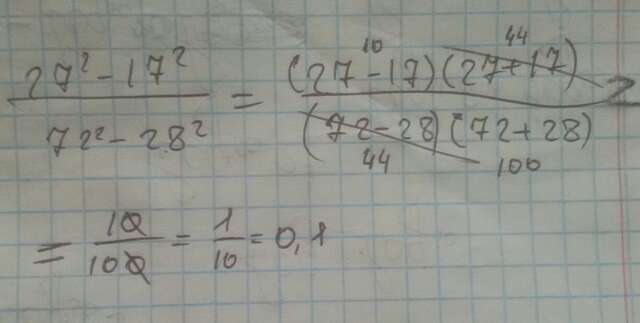 10 44
27² - 17² / 72² - 28² = (27 - 17)(27 + 17) / (72 - 28)(72 + 28) =
44 100
= 10 / 100 = 1 / 10 = 0,1